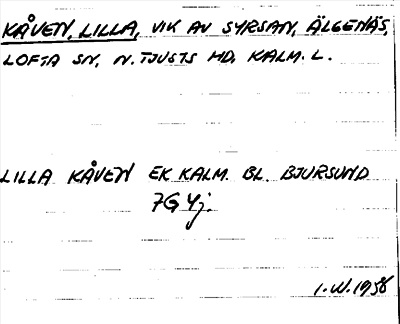 KÅVEN, LILLA, VIK AV SYRSAN, ÄLGENÄS,
LOFTA SN, N. TJUSTS HD, KALM. L.
LILLA KÅVEN EK KALM. BL. BJURSUND
7G 4j.
1. W. 1956